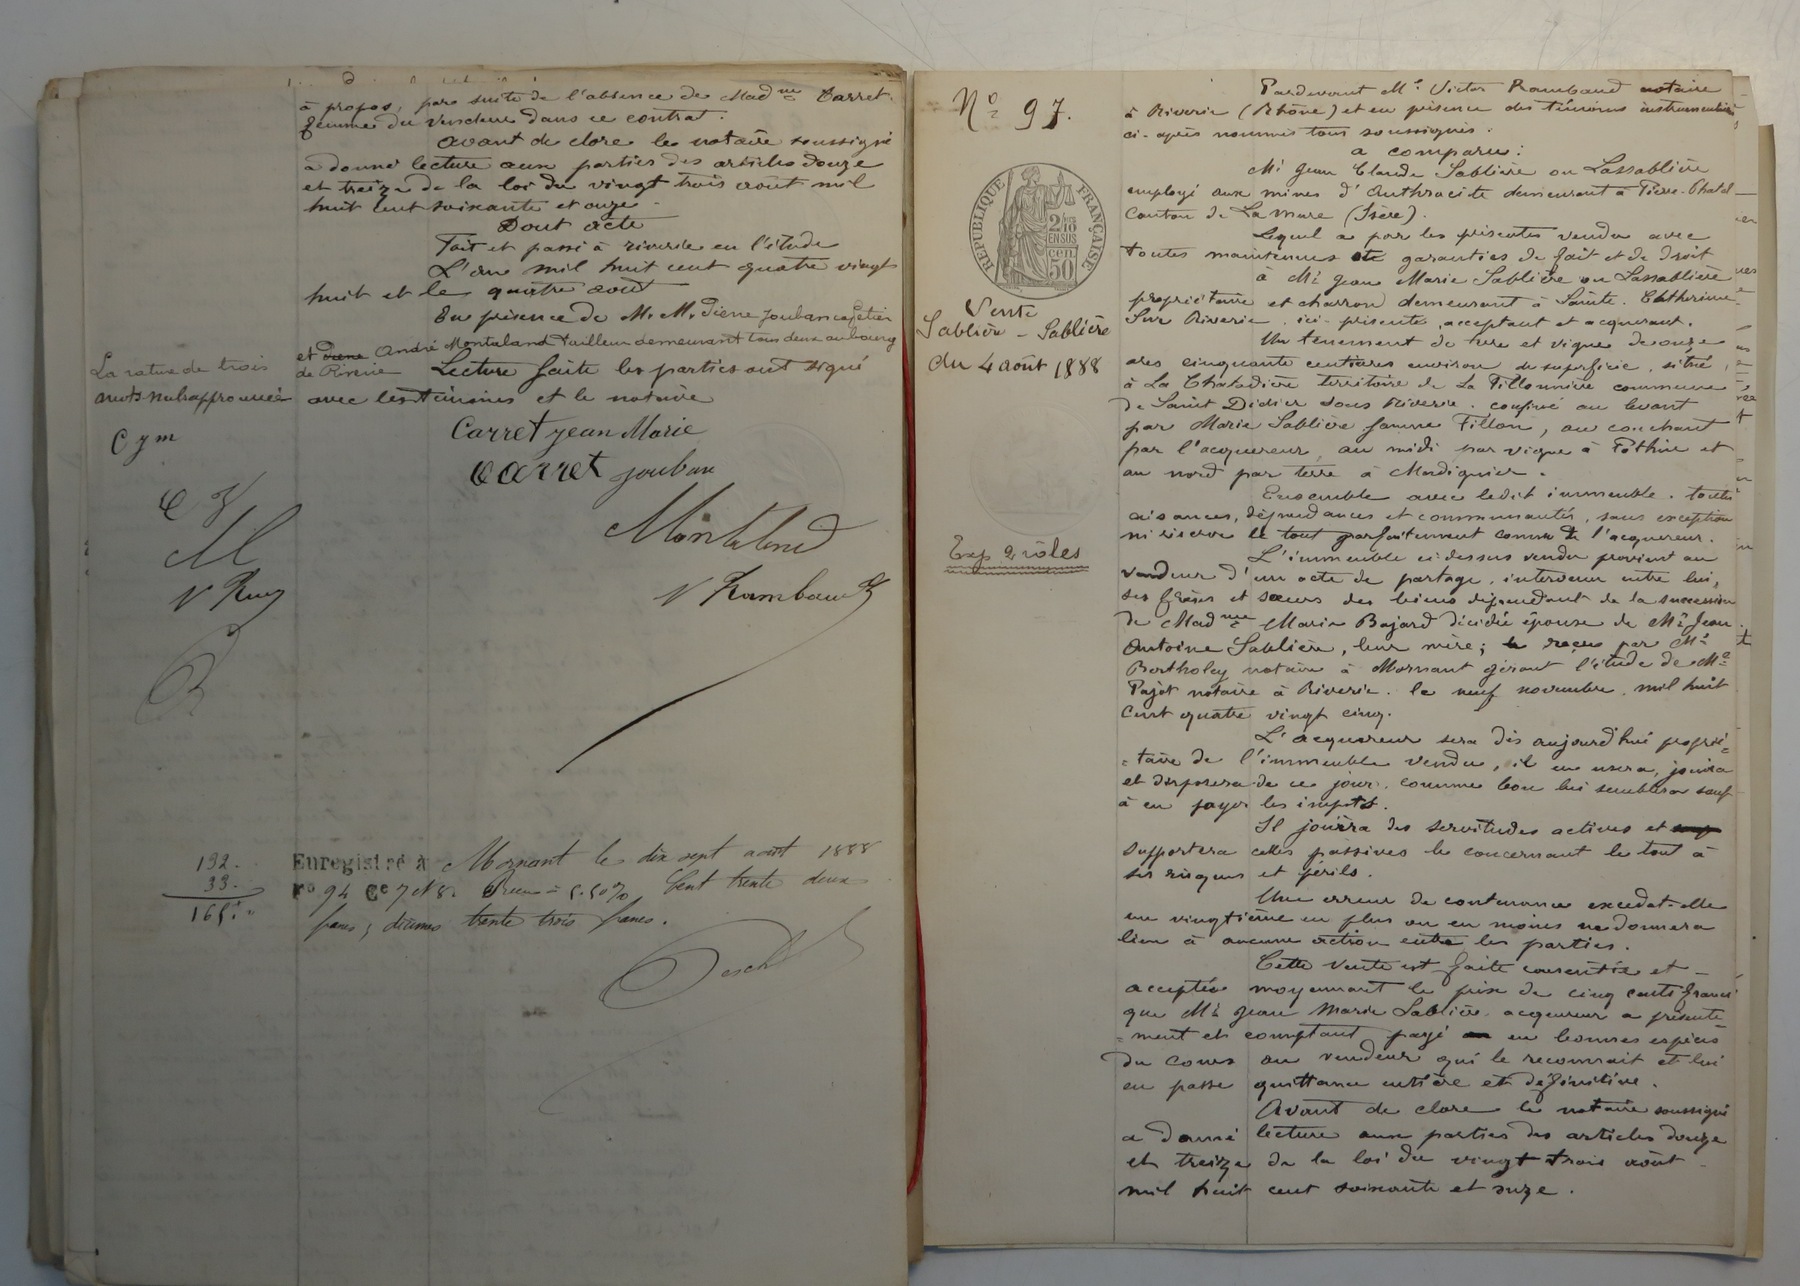 à propos, par suite de l'absence de Mad me Carret
femme du vendeur dans ce contrat.
Avant de clore le notaire soussigné
a donné lecture aux parties des articles douze
et treize de la loi du vingt trois août mil
huit cent soixante et onze.
Dont acte
Fait et passé à Riverie en l'étude
L'an mil huit cent quatre vingt
huit et le quatre août
En présence de M. M. Pierre Jouban cafetier
et André Montaland tailleur demeurant tous deux au bourg
de Riverie Lecture faite les parties ont signé
avec les témoins et le notaire
La rature de trois
mots nuls approuvée
C j m
Carret jean Marie
Carret jouban
C J
M
Montaland
V Ram
V Rambaud
132.
33.
165.
Enregistré à Mornant le dix sept août 1888
Fo 94 Ce 7 et 8. Reçu à 5.50% Cent trente deux
francs, décimes trente trois francs.
No 97.
RÉPUBLIQUE FRANÇAISE
2/10
EN SUS
cen.
50
Vente
Sablière - Sablière
du 4 août 1888
Exp 2 rôles
Pardevant Me Victor Rambaud notaire
à Riverie (Rhône) et en présence des témoins instrumentaires
ci-après nommés tous soussignés.
a comparu:
Mr Jean Claude Sablière ou Lassablière
employé aux mines d'Anthracite demeurant à Pierre-Chatel
Canton de La mure (Isère).
Lequel a par les présentes vendu avec
toutes maintenues et garanties de fait et de droit
à Mr Jean Marie Sablière ou Lassablière
propriétaire et charron demeurant à Sainte. Catherine
Sur Riverie. ici-présente, acceptant et acquérant.
Un tènement de terre et vigne de onze
ares cinquante centiares environ de superficie, situé,
à La Chaladière territoire de La Fillonnière commune
de Saint Didier sous Riverie. confiné au levant
par Marie Sablière femme Fillon, au couchant
par l'acquereur, au midi par vigne à Pothin et
au nord par terre à Mardiguier.
Ensemble avec ledit immeuble. toutes
aisances, dépendances et communautés, sans exception
ni réserve le tout parfaitement connu de l'acquereur.
L'immeuble ci-dessus vendu provient au
vendeur d'un acte de partage, intervenu entre lui,
ses frères et sœurs des biens dépendant de la succession
de Mad me Marie Bajard décédée épouse de Mr Jean
Antoine Sablière, leur mère; reçu par Me
Bertholey notaire à Mornant gérant l'étude de Me
Pajot notaire à Riverie. le neuf novembre mil huit
cent quatre vingt cinq.
L'acquereur sera dès aujourd'hui proprié=
=taire de l'immeuble vendu, il en usera, jouira
et disposera de ce jour, comme bon lui semblera sauf
à en payer les impots.
Il jouira des servitudes actives et
supportera celles passives le concernant le tout à
ses risques et périls.
Une erreur de contenance excedat-elle
un vingtième en plus ou en moins ne donnera
lieu à aucune action entre les parties.
Cette vente est faite consentie et
acceptée moyennant le prix de cinq cents francs
que Mr Jean Marie Sablière acquereur a présente
=ment et comptant payé en bonnes espèces
du cours au vendeur qui le reconnait et lui
en passe quittance entière et définitive.
Avant de clore le notaire soussigné
a donné lecture aux parties des articles douze
et treize de la loi du vingt trois août
mil huit cent soixante et onze.